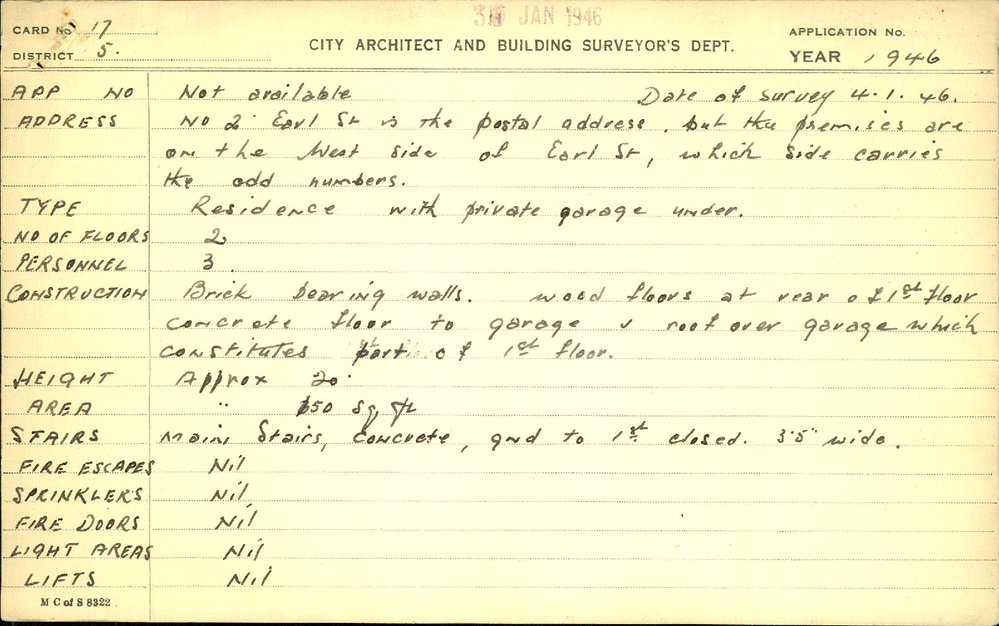 30 JAN 1946
CARD No 17
DISTRICT 5.
CITY ARCHITECT AND BUILDING SURVEYOR'S DEPT.
APPLICATION No.
YEAR 1946
APP NO Not available Date of Survey 4.1.46.
ADDRESS No 2 Earl St is the postal address, but the premises are
on the West side of Earl St, which side carries
the odd numbers.
TYPE Residence with private garage under.
NO OF FLOORS 2
PERSONNEL 3.
CONSTRUCTION Brick bearing walls. wood floors at rear of 1st floor
concrete floor to garage & roof over garage which
constitutes part of 1st floor.
HEIGHT Approx 20'
AREA " 650 Sq ft
STAIRS Main Stairs, concrete, gnd to 1st closed. 3'5" wide.
FIRE ESCAPES Nil
SPRINKLERS Nil
FIRE DOORS Nil
LIGHT AREAS Nil
LIFTS Nil
M C of S 8322